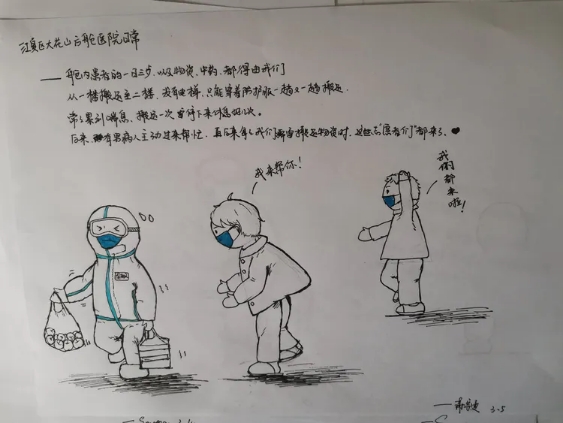 江夏区大花山方舱医院日常
——舱内患者的一日三餐，以及物资，中药，都得由我们
从一楼搬运至二楼，没有电梯，只能穿着防护服一趟又一趟搬运
常常累到喘息，搬运一次要停下来休息几次。
后来，有男病人主动过来帮忙，再后来每次我们需要搬运物资时，这些"患者们"都来了
我来帮你！
我们都来啦！
3.5